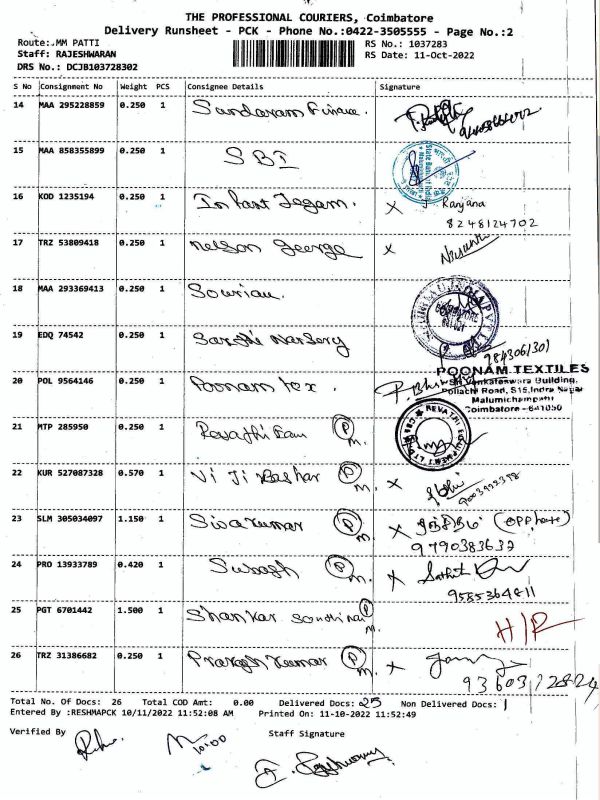 THE PROFESSIONAL COURIERS, Coimbatore
Delivery Runsheet - PCK - Phone No.:0422-3505555 - Page No.:2
Route:.MM PATTI RS No.: 1037283
Staff: RAJESHWARAN RS Date: 11-Oct-2022
DRS No.: DCJB103728302
S No Consignment No Weight PCS Consignee Details Signature
14 MAA 295228859 0.250 1 Sundaram Finance.
15 MAA 858355899 0.250 1 SBI State Bank of India
16 KOD 1235194 0.250 1 Infant Jegam. X Ranjana
8248124702
17 TRZ 53809418 0.250 1 Nelson George X
18 MAA 293369413 0.250 1 Souriau.
19 EDQ 74542 0.250 1 Sarthi Nursery
9843061301
20 POL 9564146 0.250 1 Poonam tex.
POONAM TEXTILES
Sri Venkateswara Building,
Pollachi Road, S15, Indra Nagar
Malumichampatti
Coimbatore - 641050
21 MTP 285950 0.250 1 Revathi Eam P M. REVATHI EQUIPMENT LTD
22 KUR 527087328 0.570 1 Vi Ji Bashar P M. X
23 SLM 305034097 1.150 1 Sivakumar P M. X (opp house)
9790383637
24 PRO 13933789 0.420 1 Suresh P M. X
9585364811
25 PGT 6701442 1.500 1 Shankar P M. H/R
26 TRZ 31386682 0.250 1 Prakash Kumar P M. X
9360372824
Total No. Of Docs: 26 Total COD Amt: 0.00 Delivered Docs: 25 Non Delivered Docs: 1
Entered By :RESHMAPCK 10/11/2022 11:52:08 AM Printed On: 11-10-2022 11:52:49
Verified By Staff Signature
10:00